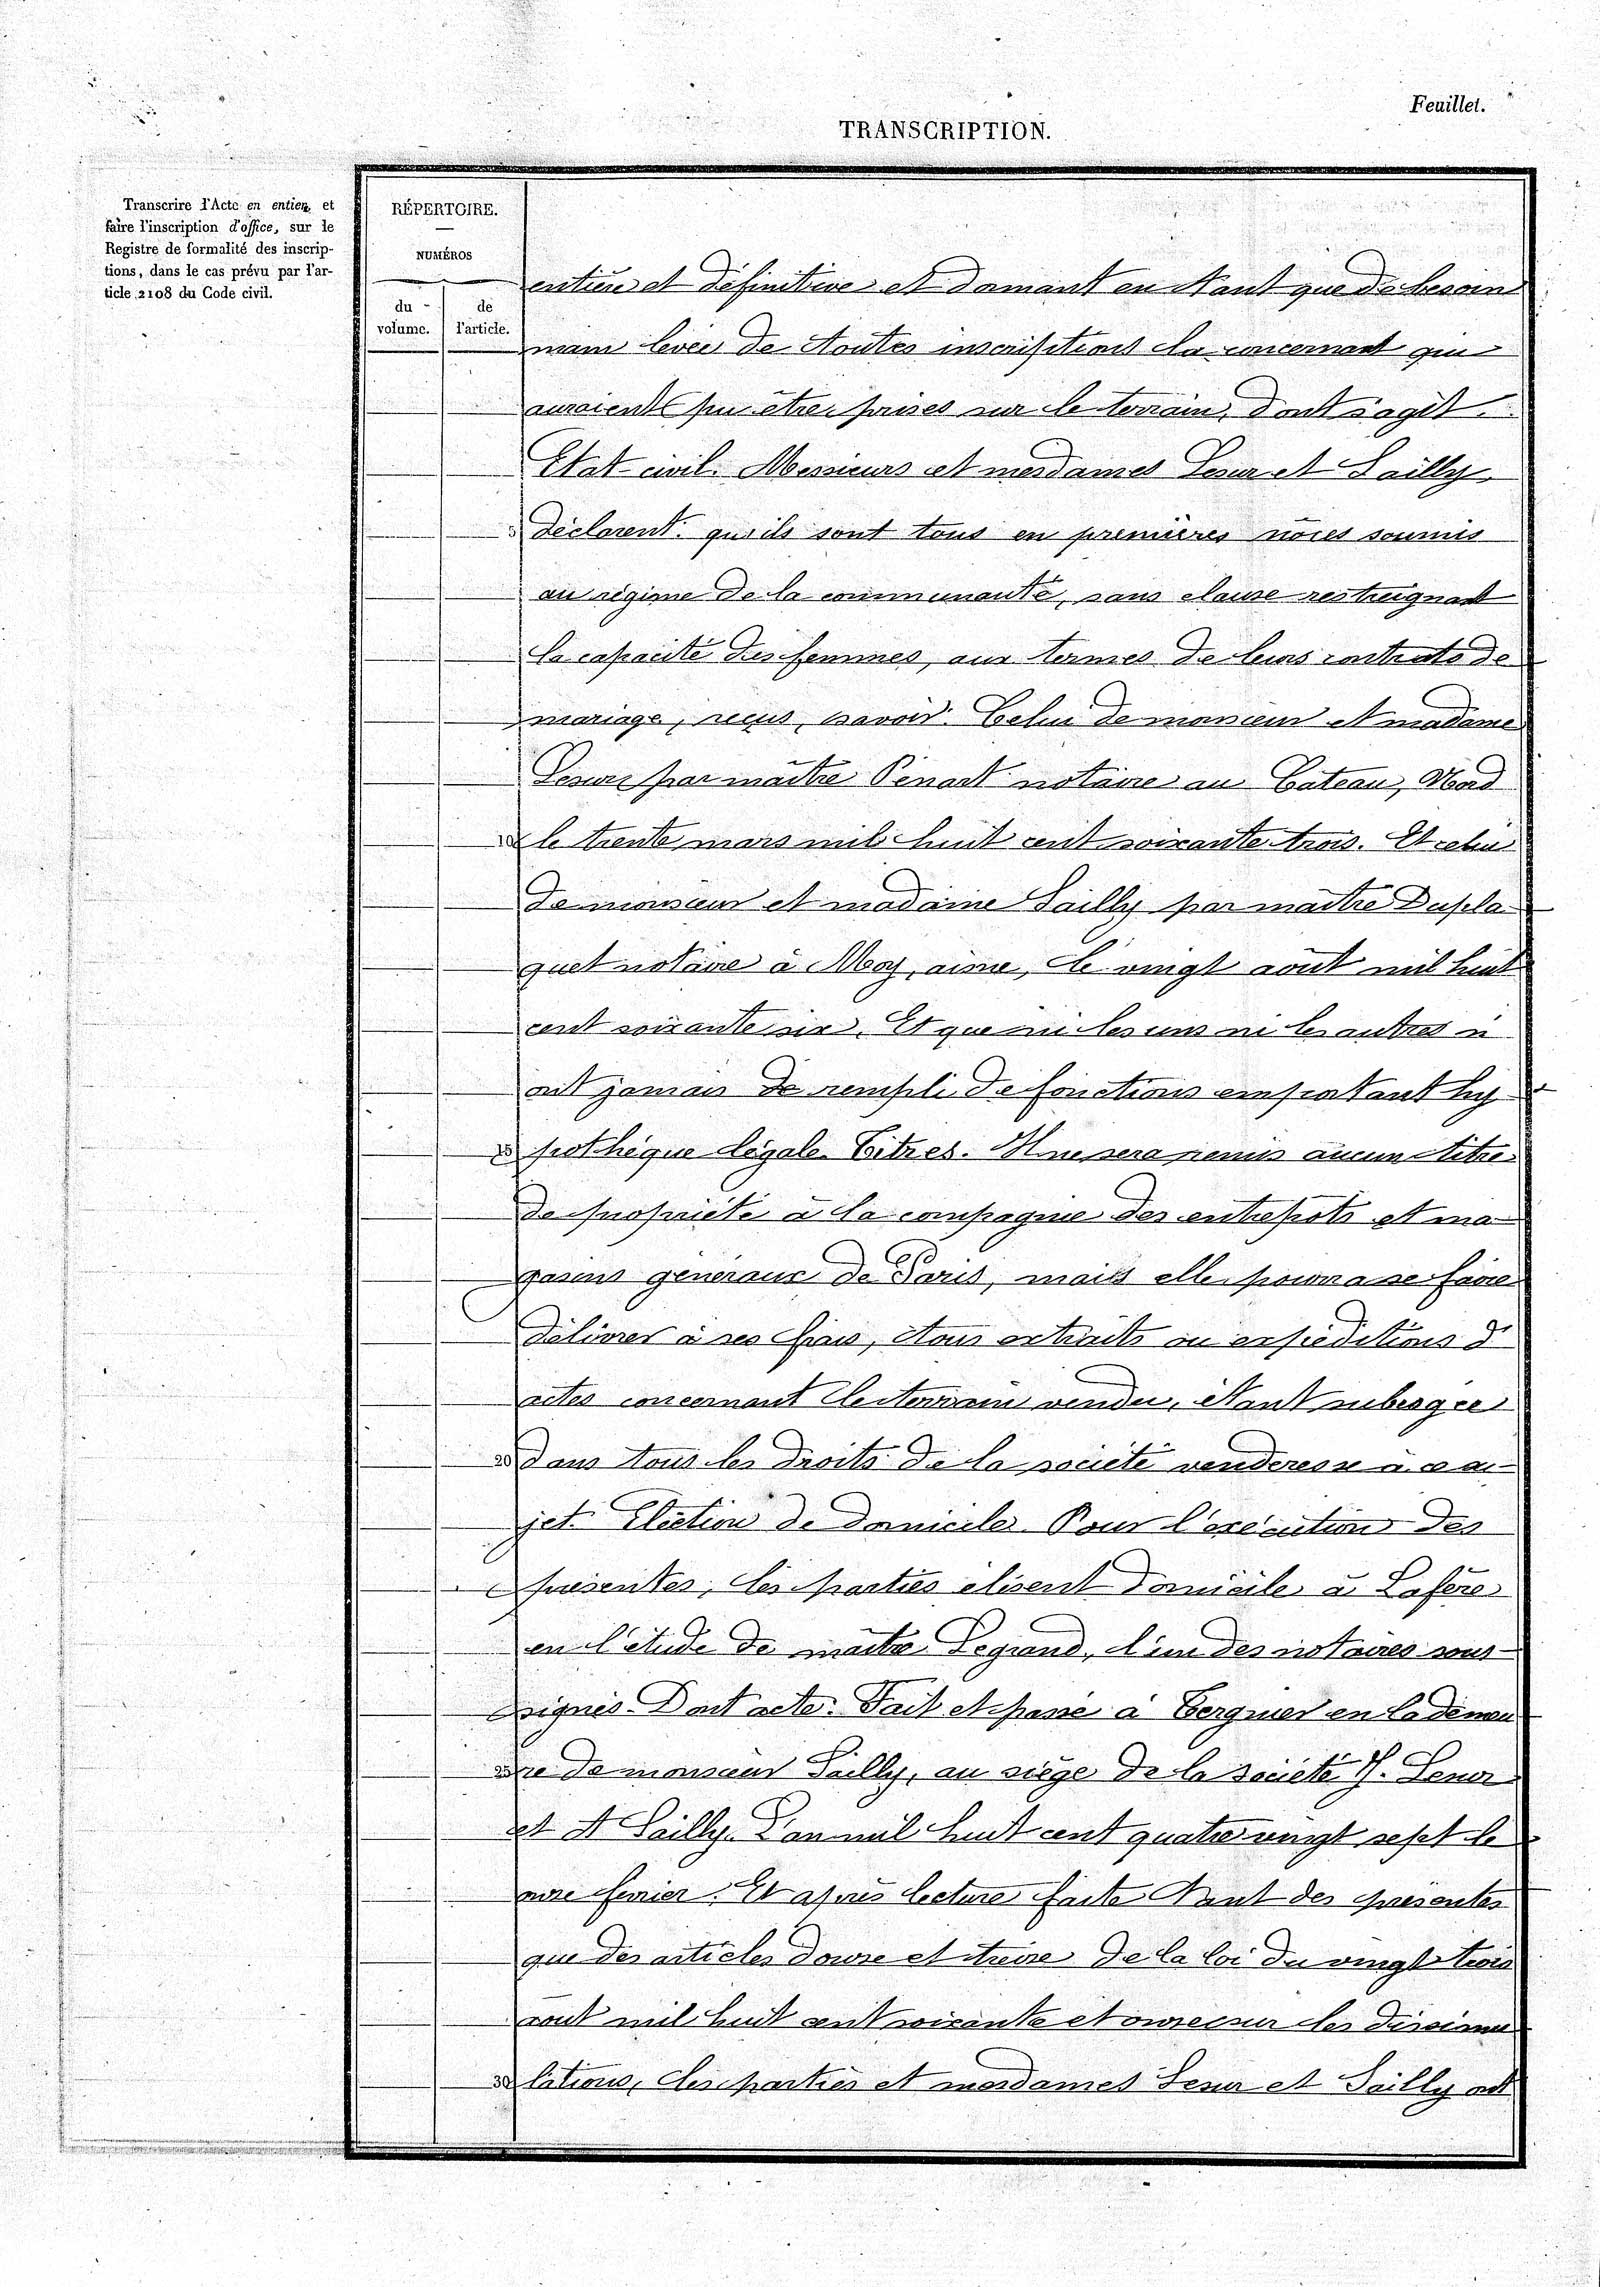 Feuillet.
TRANSCRIPTION.
Transcrire l'Acte en entier, et
faire l'inscription d'office, sur le
Registre de formalité des inscrip-
tions, dans le cas prévu par l'ar-
ticle 2108 du Code civil.
RÉPERTOIRE.
NUMÉROS
du
volume.
de
l'article.
entière et définitive et donnant en tant que de besoin
main levée de toutes inscriptions la concernant qui
auraient pu être prises sur le terrain dont s'agit.
Etat civil. Messieurs et mesdames Lesur et Sailly
5 déclarent qu'ils sont tous en premières noces soumis
au régime de la communauté, sans clause restreignant
la capacité des femmes, aux termes de leurs contrats de
mariage, reçus, savoir. Celui de monsieur et madame
Lesur par maître Pénart notaire au Cateau, Nord
10 le trente mars mil huit cent soixante trois. Et celui
de monsieur et madame Sailly par maître Dupla
quet notaire à Moy, aisne, le vingt août mil huit
cent soixante six. Et que ni les uns ni les autres n'
ont jamais de rempli de fonctions emportant hy
15 pothèque légale. Titres. Il ne sera remis aucun titre
de propriété à la compagnie des entrepots et ma
gasins généraux de Paris, mais elle pourra se faire
délivrer à ses frais, tous extraits ou expéditions d'
actes concernant le terrain vendu, étant subrogée
20 dans tous les droits de la société venderesse à ce su
jet. Election de domicile. Pour l'exécution des
présentes, les parties élisent domicile à Lafère
en l'étude de maître Legrand, l'un des notaires sous
signés. Dont acte. Fait et passé à Tergnier en la demeu
25 re de monsieur Sailly, au siège de la société H. Lesur
et A Sailly. L'an mil huit cent quatre vingt sept le
onze février. Et après lecture faite tant des présentes
que des articles douze et treize de la loi du vingt trois
août mil huit cent soixante et onze sur les dissimu
30 lations, les parties et mesdames Lesur et Sailly ont